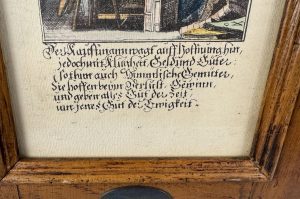 Der Kauffmann wagt auff Hoffnung hin,
jedoch mit Klugheit Geld und Güter:
so thun auch Himmlische Gemüter,
die hoffen beym Verlust, Gewinn,
und geben alles Gut der Zeit,
um jenes Gut der Ewigkeit.